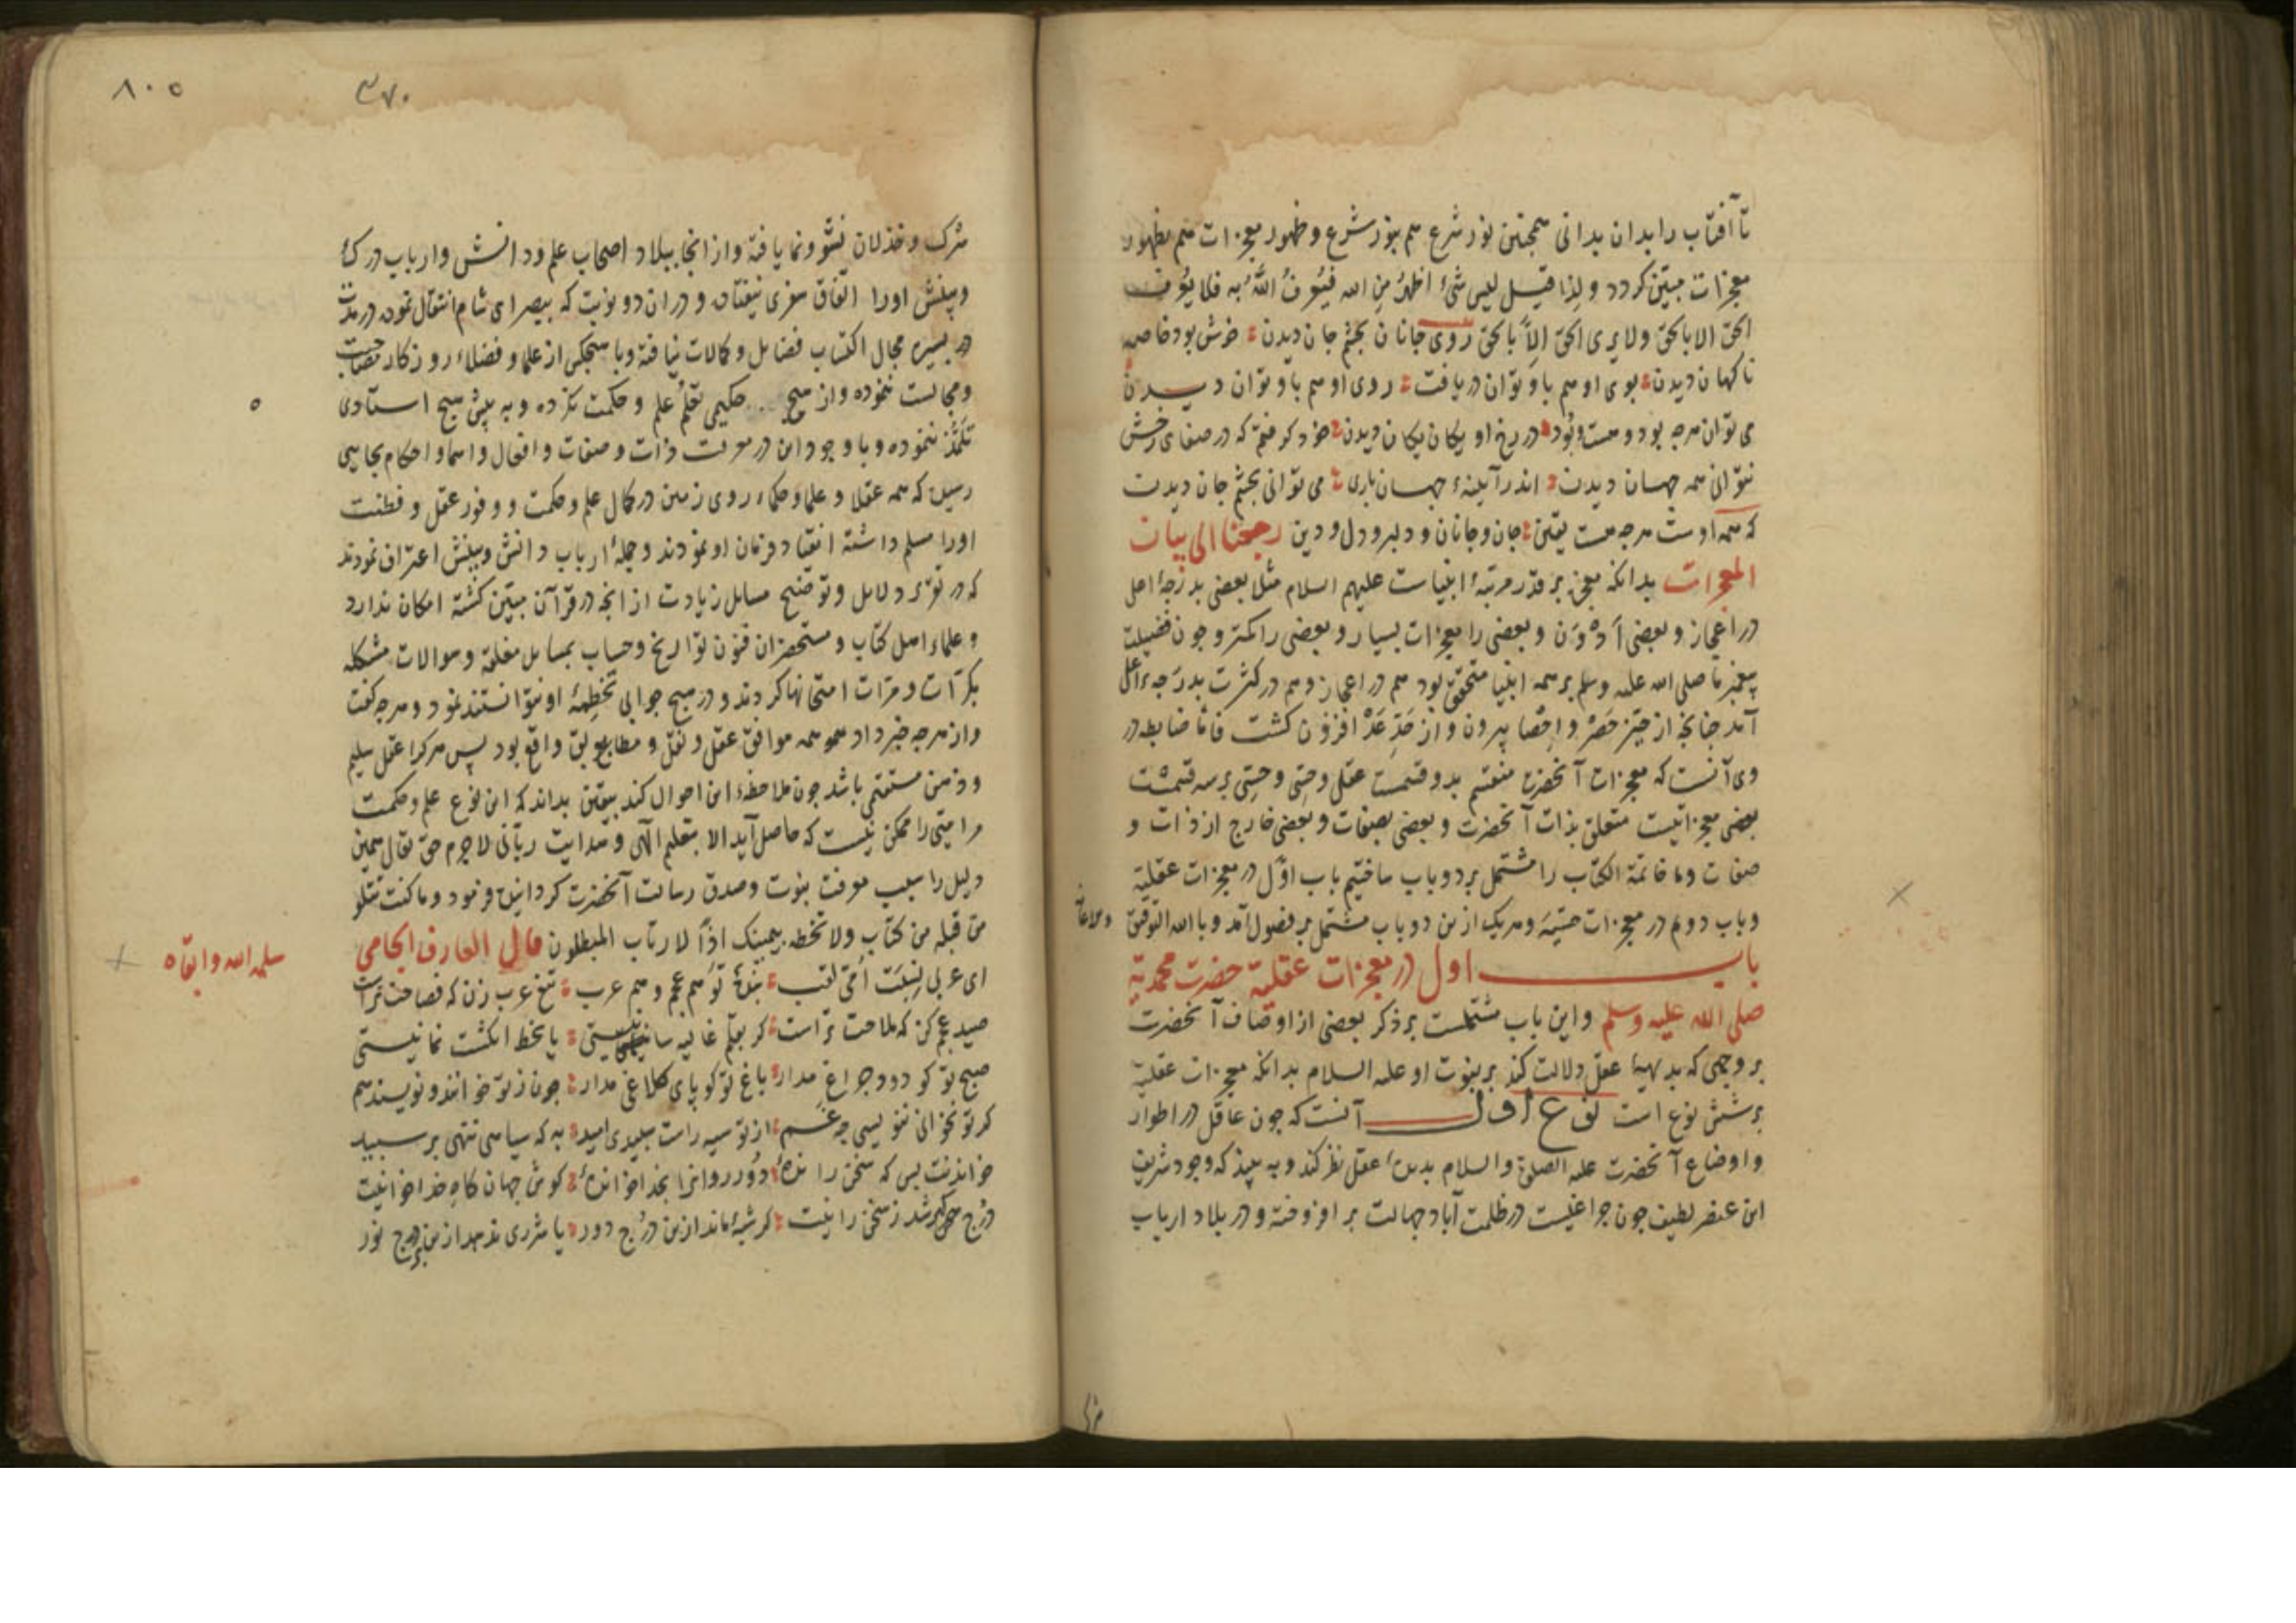 تا آفتاب را بدان بدانی همچنین نور شرع هم بنور شرع و ظهور معجزات هم بظهور
معجزات مبیّن کردد و لذا قیل لیس شیٔ اظهرُ من الله فیُعرفُ اللهُ به فلا یُعرف
الحق الا بالحق ولا یری الحق الّا بالحق روی جانان بچشم جان دیدن خوش بود خاصه
ناکهان دیدن بوی او هم باو توان دریافت روی او هم باو توان دیدن
می توان هرچه بود و هست و بُود در رخ او یکان یکان دیدن خود کرفتم که در صفای رخش
نتوانی همه جهان دیدن اندر آیینهٔ جهان باری می توانی بچشم جان دیدن
که همه اوست هرچه هست یقین جان و جانان و دلبر و دل و دین رجعنا الی بیان
المعجزات بدانکه معجزه بر قدر مرتبهٔ انبیاست علیهم السلام مثلا بعضی بدرجهٔ اعلی
در اعجاز و بعضی اَدْوَن و بعضی را معجزات بسیار و بعضی را کمتر و چون فضیلت
پیغمبر ما صلی الله علیه وسلم بر همه انبیا متحقق بود هم در اعجاز و هم در کثرت بدرجهٔ اعلی
آمد چنانچه از حیّز حَصْر و اِحْصا بیرون و از حَدّ عَدّ افزون کشت فاما ضابطه در
وی آنست که معجزات آنحضرت منقسم بدو قسمت عقلی و حِسّی و حِسّی بر سه قسمست
بعضی معجزاتیست متعلق بذات آنحضرت و بعضی بصفات و بعضی خارج از ذات و
صفات و ما خاتمة الکتاب را مشتمل بر دو باب ساختیم باب اوّل در معجزات عقلیّه
و باب دوم در معجزات حسّیّه و هر یک ازین دو باب مشتمل بر فصول آمد و بالله التوفیق
باب اول در معجزات عقلیّه حضرت محمدیّه
صلی الله علیه وسلم و این باب مشتملست بر ذکر بعضی از اوصاف آنحضرت
بر وجهی که بدیههٔ عقل دلالت کند بر نبوت او علیه السلام بدانکه معجزات عقلیّه
بر شش نوع است نوع اول آنست که چون عاقل در اطوار
و اوضاع آنحضرت علیه الصلوة والسلام بدیدهٔ عقل نظر کند و به بیند که وجود شریف
این عنصر لطیف چون چراغیست در ظلمت آباد جهالت بر افروخته و در بلاد ارباب
شرک
٨٠٥
٣٧٠
شرک و خذلان نشو و نما یافته و از انجا ببلاد اصحاب علم و دانش و ارباب درک
و بینش اورا اتفاق سفری نیفتاده و در ان دو نوبت که ببصرای شام انتقال نموده در مدت
یسیره مجال اکتساب فضایل و کمالات نیافته و با هیچکس از علما و فضلاء روزکار مصاحبت
و مجالست ننموده و از هیچ حکیمی تعلّم علم و حکمت نکرده و به پیش هیچ استادی
تلمّذ ننموده و با وجود این در معرفت ذات و صفات و افعال و اسما و احکام بجایی
رسیده که همه عقلا و علما و حکماء روی زمین در کمال علم و حکمت و وفور عقل و فطنت
اورا مسلم داشته انقیاد فرمان او نمودند و جملهٔ ارباب دانش و بینش اعتراف نمودند
که در تقریر دلایل و توضیح مسایل زیادت از انچه در قرآن مبیّن کشته امکان ندارد
و علماء اهل کتاب و مستحضران فنون تواریخ و حساب بمسایل مغلقه و سوالات مشکله
بکرّات و مرّات امتحانها کردند و در هیچ جوابی تخطئهٔ او نتوانستند نمود و هرچه کفت
و از هرچه خبر داد همه موافق عقل و نقل و مطابق واقع بود پس هرکرا عقل سلیم
و ذهن مستقیم باشد چون ملاحظهٔ این احوال کند بیقین بداند که این نوع علم و حکمت
مر امیّی را ممکن نیست که حاصل آید الا بتعلیم الٓهی و هدایت ربّانی لاجرم حق تعالی همین
دلیل را سبب معرفت نبوت و صدق رسالت آنحضرت کردانید و فرمود وما کنت تتلو
من قبله من کتاب ولا تخطه بیمینک اذاً لارتاب المبطلون قال العارف الجامی
سلمه الله وابقاه
ای عربی نسبت امّی لقب بندهٔ تو هم عجم و هم عرب تیغ عرب زن که فصاحت تراست
صید عجم کن که ملاحت تراست کر بقلم غالیه سا نیستی یا بخط انکشت نما نیستی
صبح تو کو دود چراغی مدار باغ تو کو پای کلاغی مدار چون ز تو خوانند و نویسند هم
کر تو نخوانی ننویسی چه غم از تو سیه راست سپیدی امید به که سیاهی ننهی بر سپید